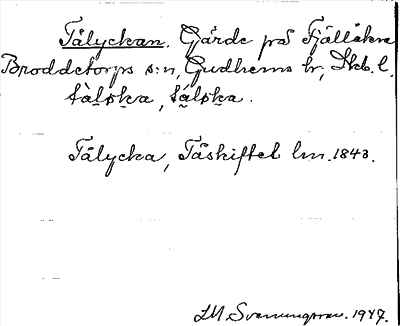 Tålyckan. Gärde på Fjällåkra
Broddetorps s:n, Gudhems hr, Skb. l.
Tålycka, Tåskiftet lm. 1843.
Svenungsson. 1947.